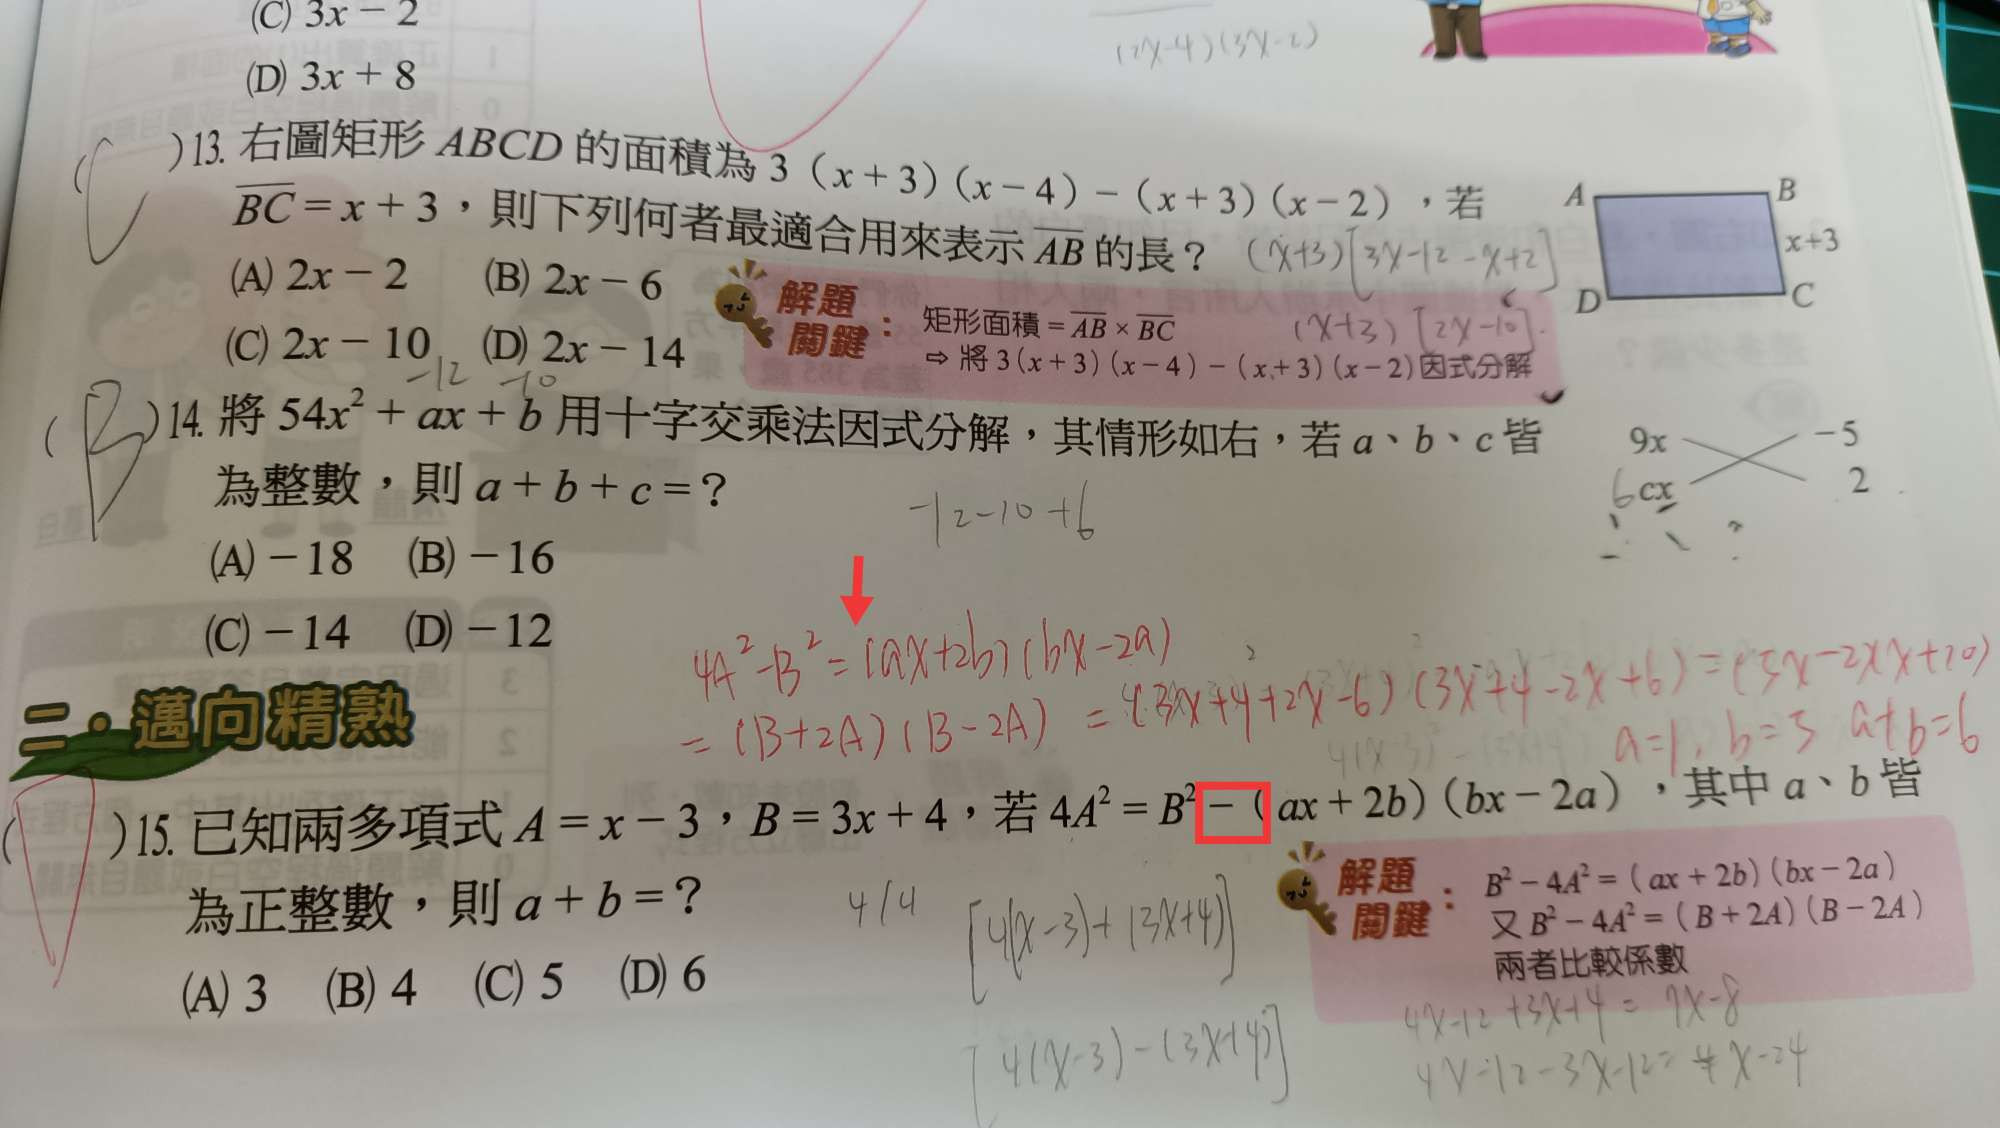 (C) 3x − 2
(2x-4)(3x-2)
(D) 3x + 8
( C )13. 右圖矩形 ABCD 的面積為 3（x + 3）（x − 4）−（x + 3）（x − 2），若
BC = x + 3，則下列何者最適合用來表示 AB 的長？
(x+3)[3x-12-x+2]
(x+3)[2x-10]
A B
x+3
D C
(A) 2x − 2 (B) 2x − 6
(C) 2x − 10 (D) 2x − 14
解題關鍵：
矩形面積 = AB × BC
⇨ 將 3(x + 3)(x − 4) − (x + 3)(x − 2)因式分解
-12 -10
( B )14. 將 54x² + ax + b 用十字交乘法因式分解，其情形如右，若 a、b、c 皆
為整數，則 a + b + c = ？
9x −5
6 cx 2
-12-10+6
(A) − 18 (B) − 16
(C) − 14 (D) − 12
4A²-B²=(ax+2b)(bx-2a)
=(B+2A)(B-2A)=(3x+4+2x-6)(3x+4-2x+6)=(5x-2)(x+10)
a=1, b=5 a+b=6
二・邁向精熟
( )15. 已知兩多項式 A = x − 3，B = 3x + 4，若 4A² = B² −（ax + 2b）（bx − 2a），其中 a、b 皆
為正整數，則 a + b = ？
(A) 3 (B) 4 (C) 5 (D) 6
解題關鍵：
B² − 4A² =（ax + 2b）（bx − 2a）
又 B² − 4A² =（B + 2A）（B − 2A）
兩者比較係數
[4(x-3)+(3x+4)]
[4(x-3)-(3x+4)]
4x-12+3x+4=7x-8